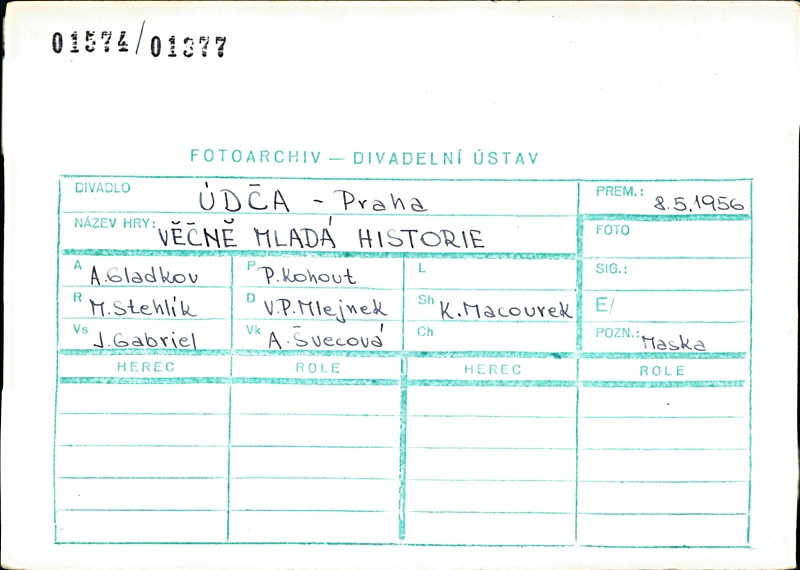 01574/01377
FOTOARCHIV — DIVADELNÍ ÚSTAV
DIVADLO ÚDČA - Praha PREM.: 2.5.1956
NÁZEV HRY: VĚČNĚ MLADÁ HISTORIE FOTO
A A. Gladkov P P. Kohout L SIG.:
R M. Stehlík D V.P. Mlejnek Sh K. Macourek E/
Vs J. Gabriel Vk A. Švecová Ch POZN.: Maska
HEREC ROLE HEREC ROLE